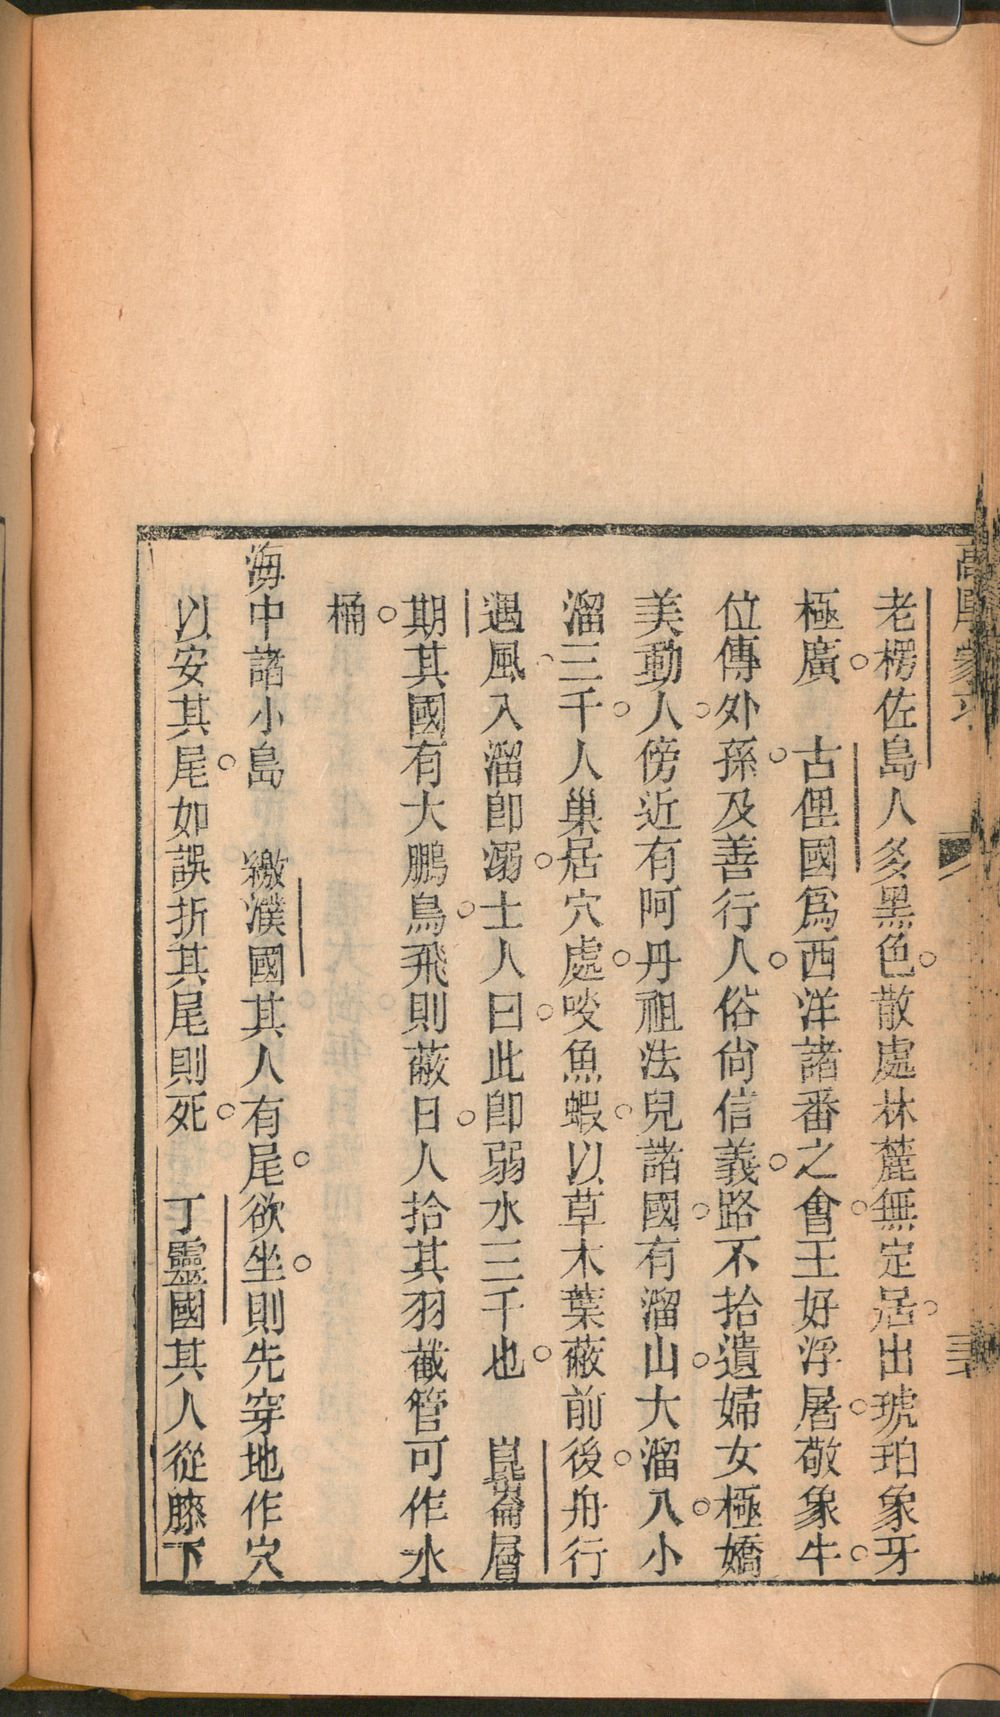 老楞佐島人多黑色散處林麓無定居出琥珀象牙
極廣　古俚國爲西洋諸番之會王好浮屠敬象牛
位傳外孫及善行人俗尙信義路不拾遺婦女極嬌
美動人傍近有呵丹祖法兒諸國有溜山大溜八小
溜三千人巢居穴處咬魚蝦以草木葉蔽前後舟行
遇風入溜卽溺士人曰此卽弱水三千也　崑崙層
期其國有大鵬鳥飛則蔽日人拾其羽截管可作水
桶
海中諸小島　繳濮國其人有尾欲坐則先穿地作穴
以安其尾如誤折其尾則死　丁靈國其人從膝下